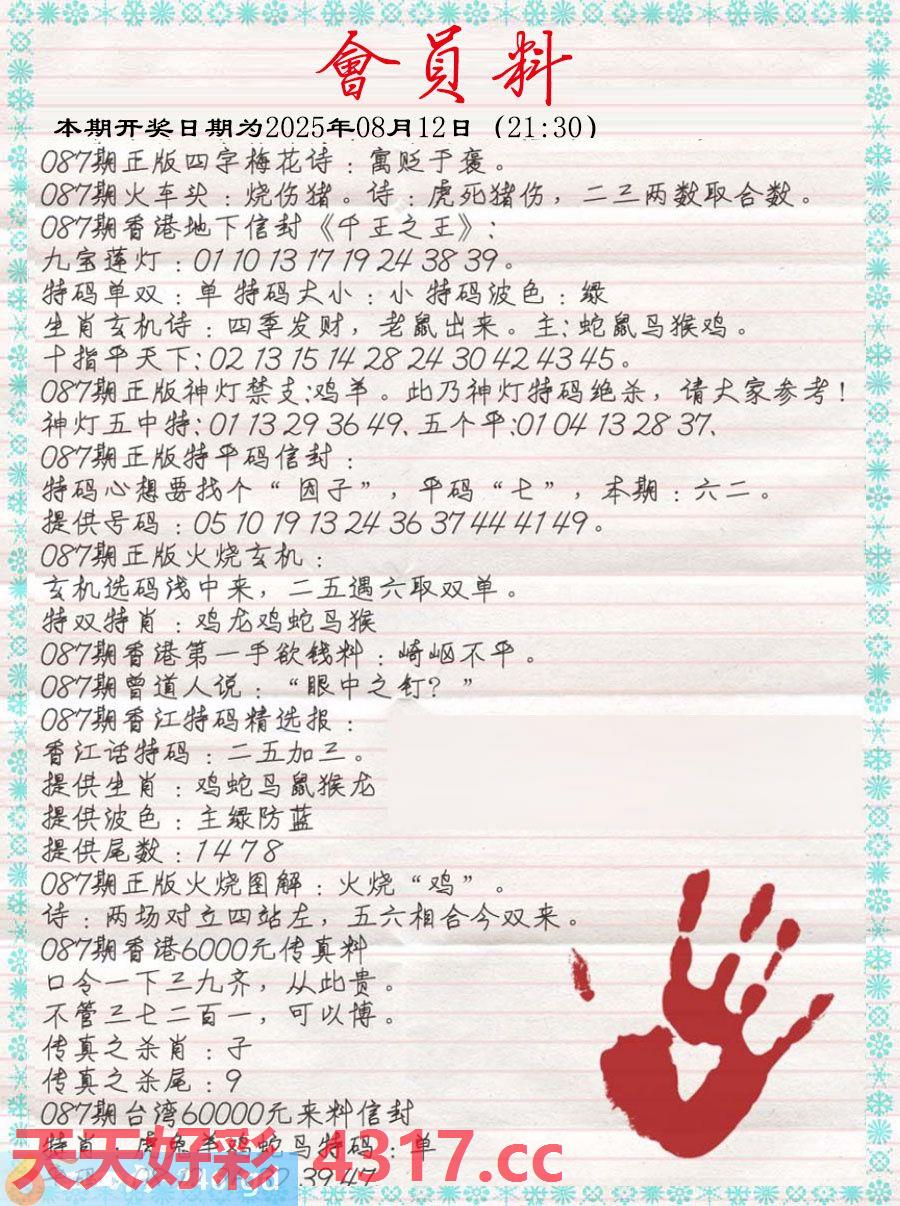 會員料
本期开奖日期为2025年08月12日（21:30）
087期正版四字梅花诗：寓贬于褒。
087期火车头：烧伤猪。诗：虎死猪伤，二三两数取合数。
087期香港地下信封《千王之王》：
九宝莲灯：01 10 13 17 19 24 38 39。
特码单双：单 特码大小：小 特码波色：绿
生肖玄机诗：四季发财，老鼠出来。主：蛇鼠鸟猴鸡。
十指平天下：02 13 15 14 28 24 30 42 43 45。
087期正版神灯禁支：鸡羊。此乃神灯特码绝杀，请大家参考！
神灯五中特：01 13 29 36 49、五个平：01 04 13 28 37、
087期正版特平码信封：
特码心想要找个“因子”，平码“七”，本期：六二。
提供号码：05 10 19 13 24 36 37 44 41 49。
087期正版火烧玄机：
玄机选码浅中来，二五遇六取双单。
特双特肖：鸡龙鸡蛇鸟猴
087期香港第一手欲钱料：崎岖不平。
087期曾道人说：“眼中之钉？”
087期香江特码精选报：
香江话特码：二五加三。
提供生肖：鸡蛇鸟鼠猴龙
提供波色：主绿防蓝
提供尾数：1 4 7 8
087期正版火烧图解：火烧“鸡”。
诗：两场对立四站左，五六相合今双来。
087期香港6000元传真料
口令一下三九齐，从此贵。
不管三七二百一，可以博。
传真之杀肖：子
传真之杀尾：9
087期台湾60000元来料信封
特肖：虎兔羊鸡蛇鸟特码：单
39 47
天天好彩 4317.cc